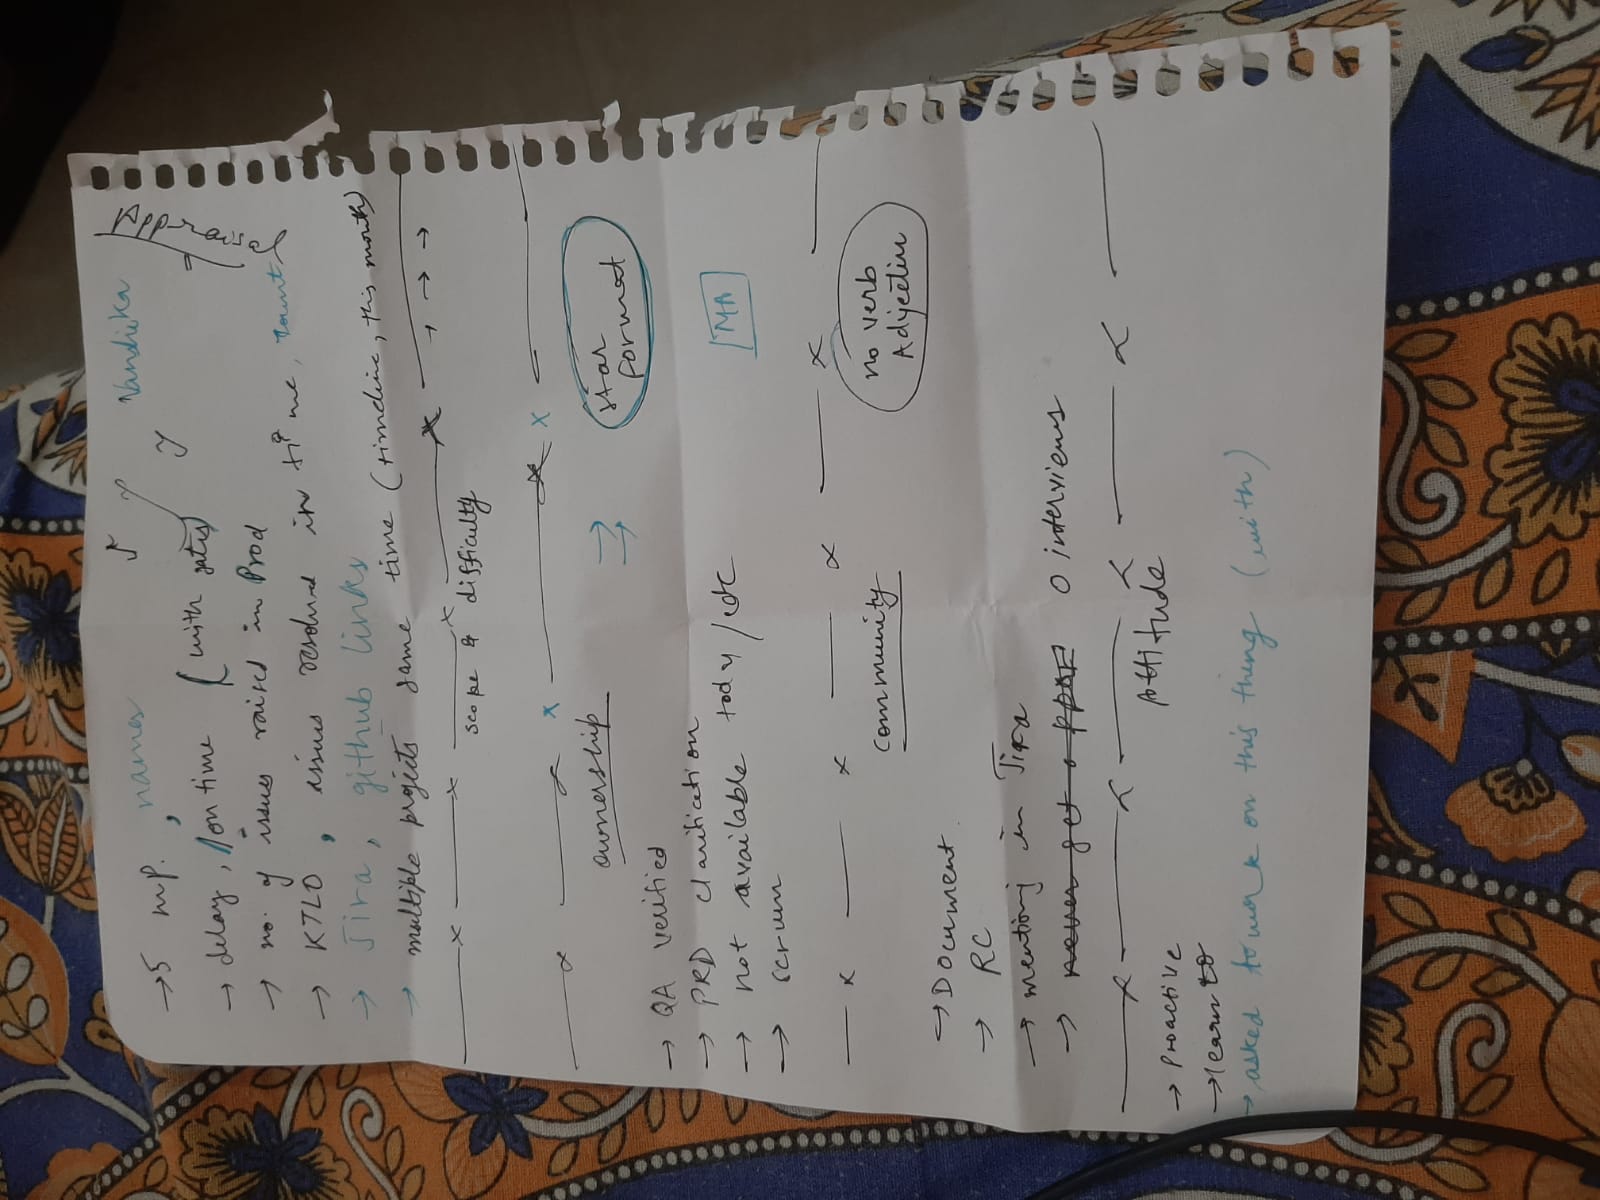 → 5 mp., names
Nandika
Appraisal
→ delay, / on time (with gates)
→ no. of issues raised in Prod
→ KTLO, issues resolved in time, count
→ Jira, github links
→ multiple projects same time (timeline, this month)
scope & difficulty
ownership
star
format
→ QA verified
→ PRD clarification
→ not available today / etc
→ scrum
MA
community
no verb
Adjective
→ Document
→ RC
→ mentioning in Jira
→ never get oppor 0 interviews
Attitude
→ Proactive
→ learn to
→ asked to work on this thing (with)